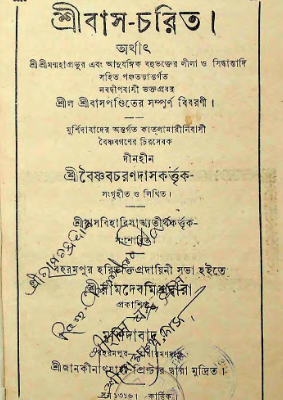 শ্রীবাস-চরিত।
অর্থাৎ
শ্রীশ্রীমন্মহাপ্রভুর এবং আনুষঙ্গিক বহুভক্তের লীলা ও সিদ্ধান্তাদি
সহিত পঞ্চতত্ত্বান্তর্গত
নবদ্বীপবাসী ভক্তপ্রবর
শ্রীল শ্রীবাসপণ্ডিতের সম্পূর্ণ বিবরণী।
মুর্শিদাবাদের অন্তর্গত কাতলামারীনিবাসী
বৈষ্ণবগণের চিরসেবক
দীনহীন
শ্রীবৈষ্ণবচরণদাসকর্ত্তৃক-
সংগৃহীত ও লিখিত।
শ্রীরাসবিহারিসাংখ্যতীর্থকর্ত্তৃক-
সংশোধিত
বহরমপুর হরিভক্তিপ্রদায়িনী সভা হইতে
শ্রীরামদেবমিশ্রদ্বারা
প্রকাশিত
মুর্শিদাবাদ
বহরমপুর
দ্বারা মুদ্রিত।
সন ১৩১৬। কার্ত্তিক।